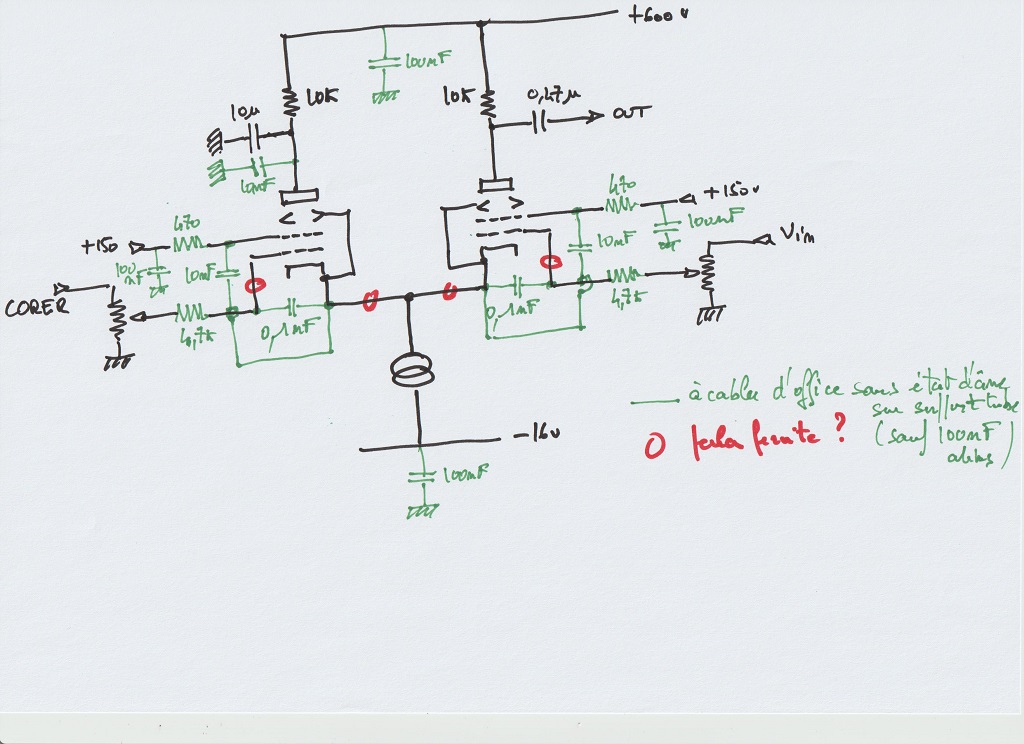 +600v
100nF
10K
10K
0,47µ
OUT
10µ
10nF
470
+150v
470
+150
100nF
10nF
Vin
100
nF
10nF
CORER
4,7k
0,1nF
0,1nF
4,7k
-16v
à cabler d'office sans état d'âme
sur support tube
(sauf 100nF
alims)
O perle ferrite ?
100nF